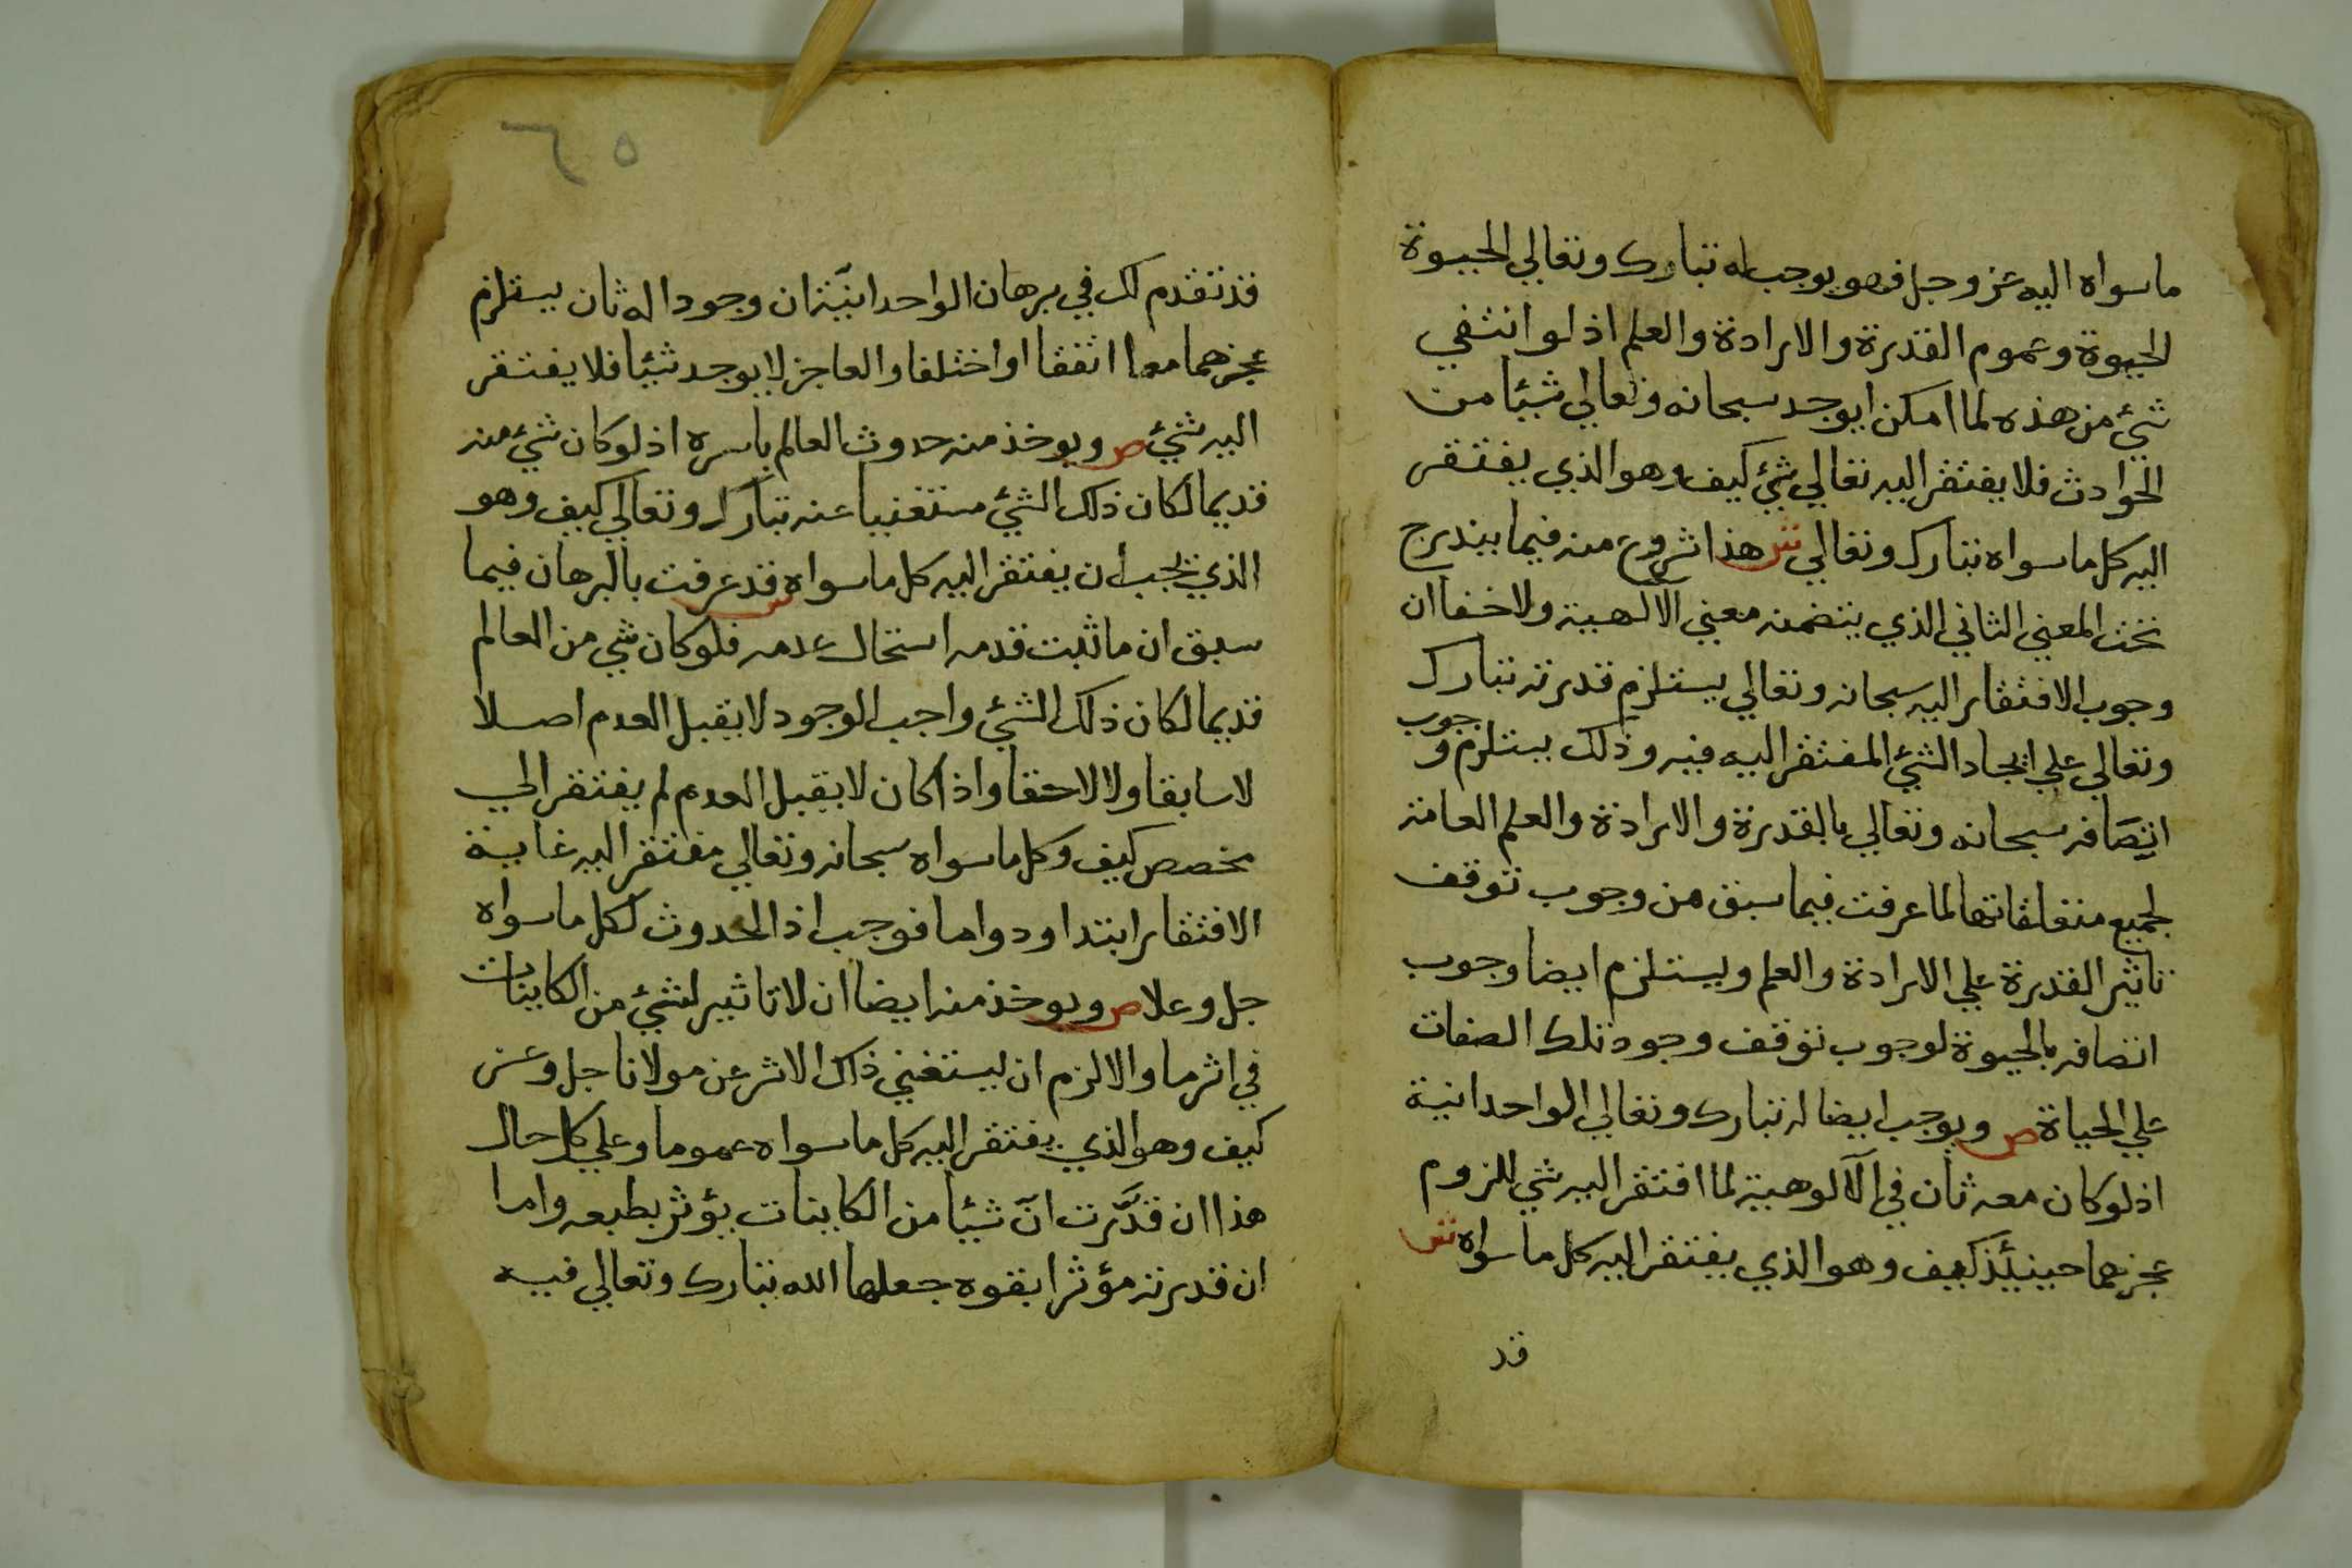 ماسواه اليه عز وجل فهو يوجب له تبارك وتعالي الحيوة
الحيوة وعموم القدرة والارادة والعلم اذ لو انتفي
شئ من هذه لما امكن ايوجد سبحانه وتعالي شيئا من
الحوادث فلا يفتقر اليه تعالي شئ كيف وهو الذي يفتقر
اليه كل ماسواه تبارك وتعالي ش هذا شروع منه فيما يندرج
تحت المعني الثاني الذي يتضمنه معني الالهية ولا خفا ان
وجوب الافتقار اليه سبحانه وتعالي يستلزم قدرته تبارك
وتعالي علي ايجاد الشئ المفتقر اليه فيه وذلك يستلزم وجوب
اتصافه سبحانه وتعالي بالقدرة والارادة والعلم العامة
لجميع متعلقاتها لما عرفت فيما سبق من وجوب توقف
تاثير القدرة علي الارادة والعلم ويستلزم ايضا وجوب
اتصافه بالحيوة لوجوب توقف وجود تلك الصفات
علي الحياة ص ويوجب ايضا له تبارك وتعالي الواحدانية
اذ لو كان معه ثان في الالوهية لما افتقر اليه شي للزوم
عجزهما حينئذ كيف وهو الذي يفتقر اليه كل ماسواه ش
قد
٦٥
قد تقدم لك في برهان الواحدانية ان وجود اله ثان يستلزم
عجزهما معا اتفقا او اختلفا والعاجز لا يوجد شيئا فلا يفتقر
اليه شئ ص ويوخذ منه حدوث العالم باسره اذ لو كان شئ منه
قديما لكان ذلك الشئ مستغنيا عنه تبارك وتعالي كيف وهو
الذي يجب ان يفتقر اليه كل ماسواه ش قد عرفت بالبرهان فيما
سبق ان ماثبت قدمه استحال عدمه فلو كان شي من العالم
قديما لكان ذلك الشئ واجب الوجود لا يقبل العدم اصلا
لا سابقا ولا لاحقا واذا كان لا يقبل العدم لم يفتقر الي
مخصص كيف وكل ماسواه سبحانه وتعالي مفتقر اليه غاية
الافتقار ابتدا ودواما فوجب اذ الحدوث لكل ماسواه
جل وعلا ص ويوخذ منه ايضا ان لا تاثير لشئ من الكاينات
في اثر ما والا لزم ان يستغني ذاك الاثر عن مولانا جل وعز
كيف وهو الذي يفتقر اليه كل ماسواه عموما وعلي كل حال
هذا ان قدَّرت انَّ شيئا من الكاينات يؤثر بطبعه واما
ان قدرته مؤثرا بقوه جعلها الله تبارك وتعالي فيه